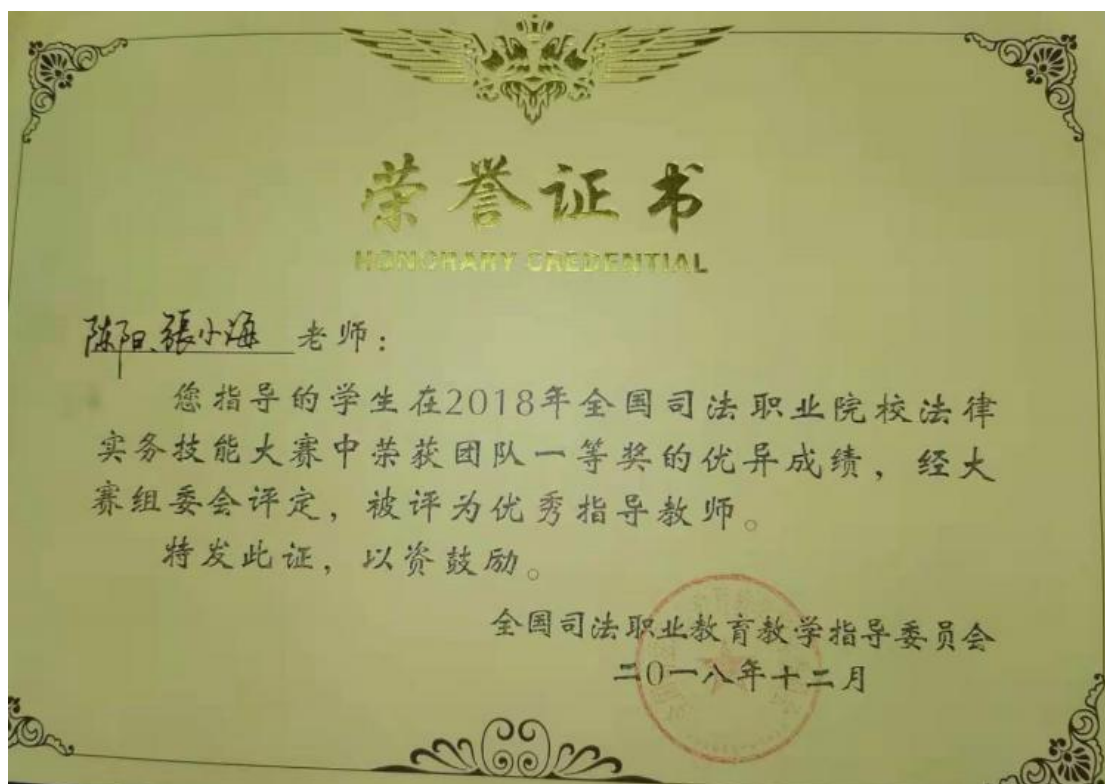 荣誉证书
HONORARY CREDENTIAL
陈阳、張小海 老师：
您指导的学生在2018年全国司法职业院校法律
实务技能大赛中荣获团队一等奖的优异成绩，经大
赛组委会评定，被评为优秀指导教师。
特发此证，以资鼓励。
全国司法职业教育教学指导委员会
二0一八年十二月